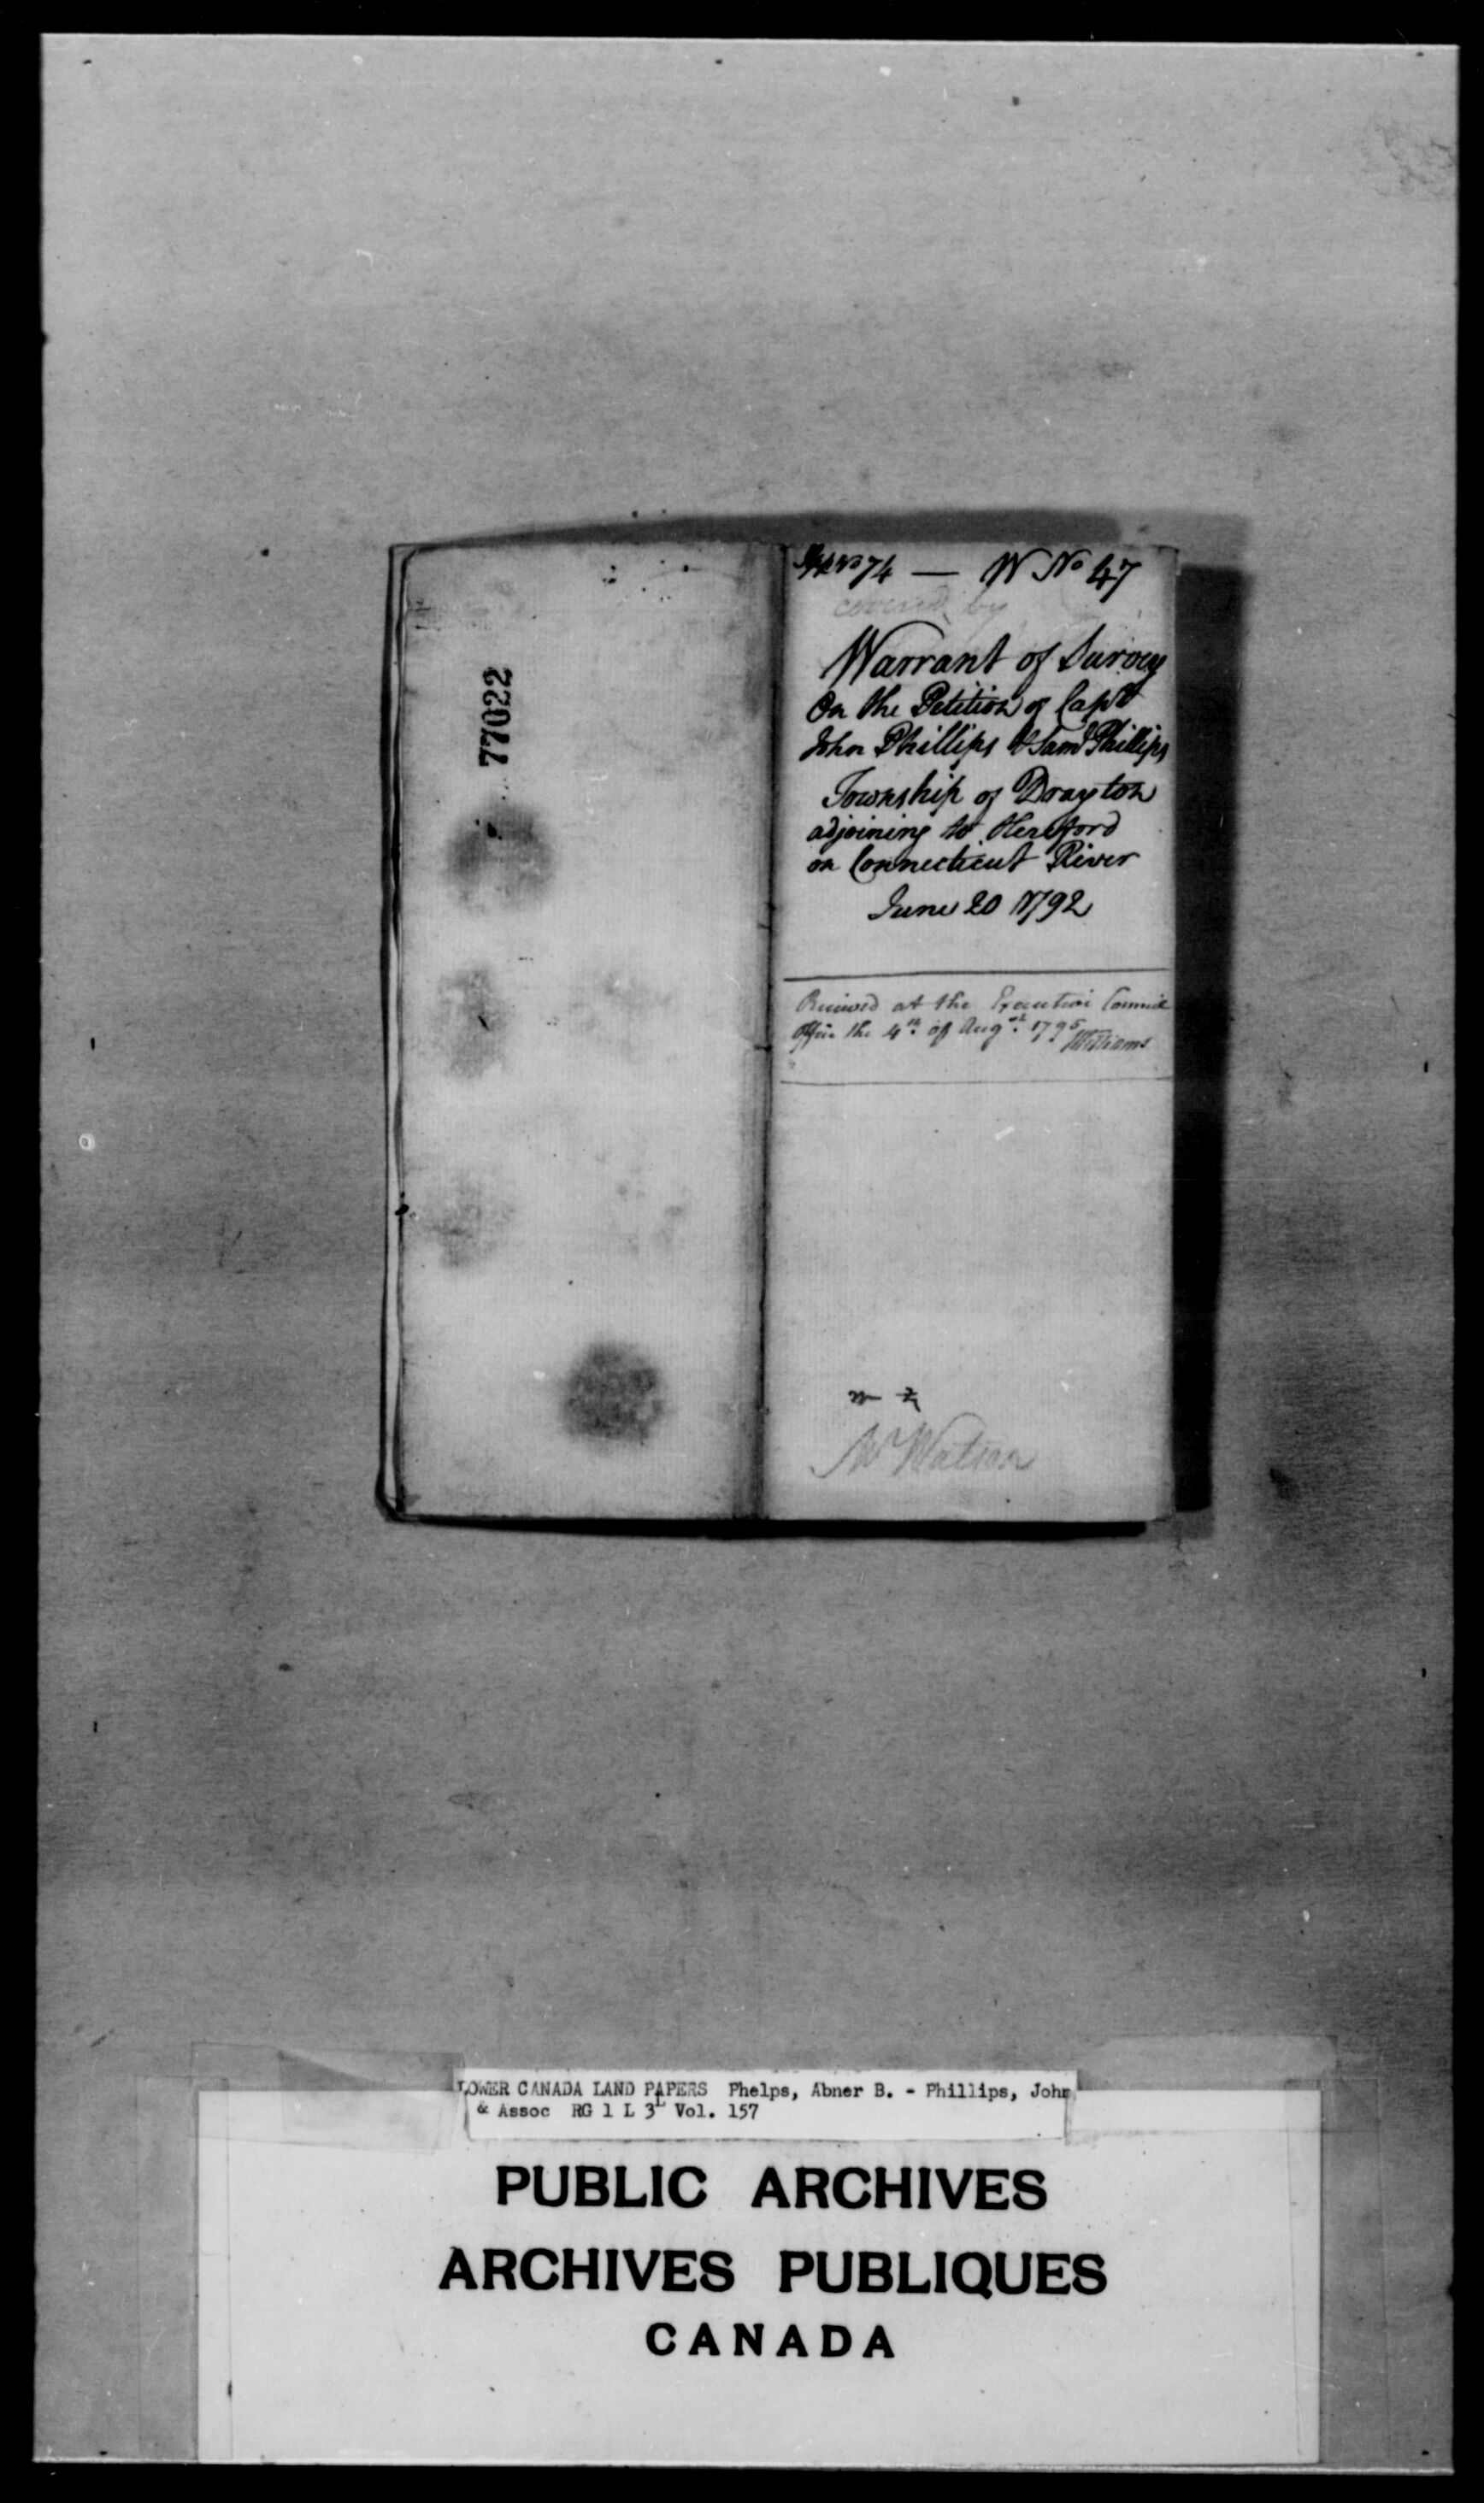 77022
No 74 — W No 47
covered by
Warrant of Survey
On the Petition of Capt
John Phillips & Saml Phillips
Township of Drayton
adjoining to Hereford
on Connecticut River
June 20 1792
Received at the Executive Council
Office the 4th of Augt. 1795
HWilliams
Mr Watson
LOWER CANADA LAND PAPERS Phelps, Abner B. - Phillips, John
& Assoc RG 1 L 3L Vol. 157
PUBLIC ARCHIVES
ARCHIVES PUBLIQUES
CANADA